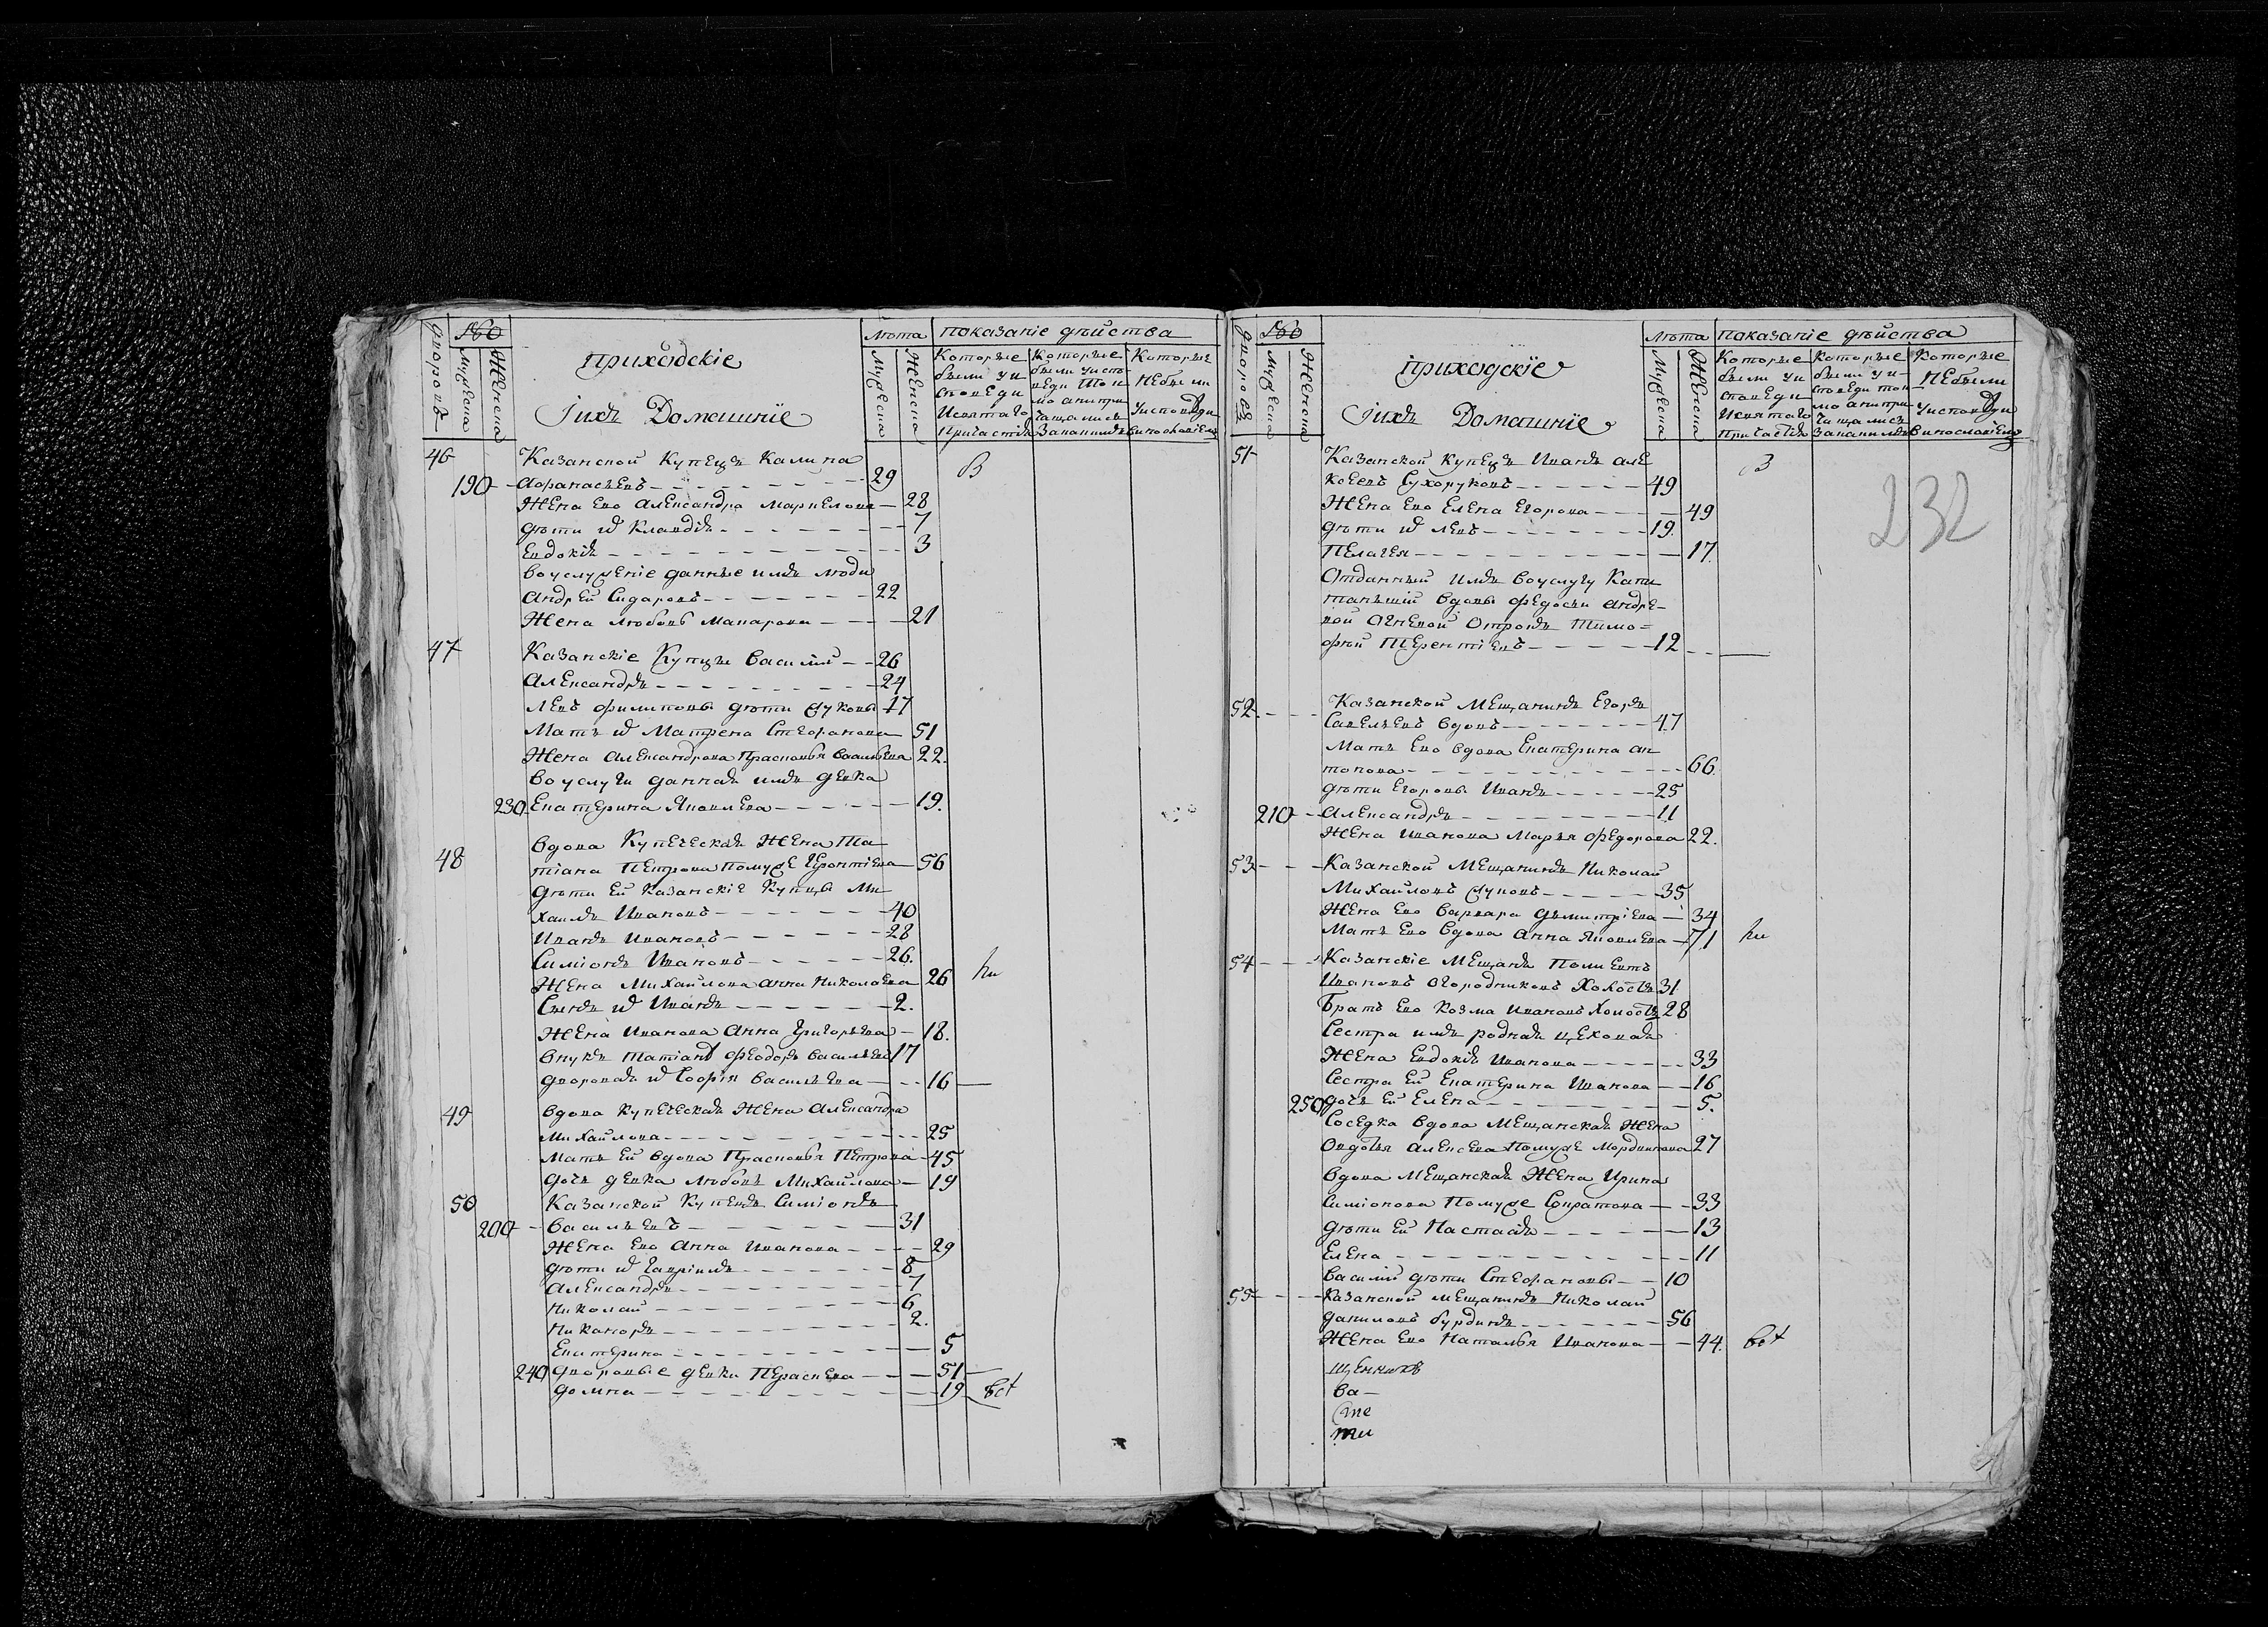 дворовъ
Мужеска
Женска
приходскіе
Лѣта
показаніе дѣиства
Мужеска
Женска
Которые
были уи
споведи
исвятаго
Причастія
Которые
были уиспо
веди токи
мо анепри
чащались
Которые
Небыли
уисповеди
Iихъ Домашнiе
46
Казанской Купецъ Калина
В
190 Афанасьевъ 29
Жена Ево Александра Маркелова 28
дѣти ихъ Клавдія 7
Евдокія 3
воуслуженіе данные имъ люди
Андреи Сидаровъ 22
Жена Любовь Макарова 21
47
Казанскіе Купцы Василий 26
Александръ 24
Левъ Филиповы дѣти 17
Мать ихъ Матрена Стефанова 51
Жена Александрова Прасковья Васильева 22.
воуслуги данная имъ девка
230 Екатерина Яковлева 19.
48
Вдова Купеческая Жена Та
тіана Петрова помуже Терентіева 56
дѣти Еи Казанскіе Купцы Ми
хаилъ Ивановъ 40
Иванъ Ивановъ 28
Симіонъ Ивановъ 26.
Жена Михаилова Анна Николаева 26
Сынъ ихъ Иванъ 2.
Жена Иванова Анна Григорьева 18.
внукъ Татіаны Феодоръ Васильевъ 17
дворовая ихъ Софія Васильева 16
49
Вдова купеческая Жена Александра
Михаилова 25
Мать Еи вдова Прасковья Петрова 45
дочь девка Любовь Михаилова 19
50
Казанской Купецъ Симіонъ
200 Васильевъ 31
Жена Ево Анна Иванова 29
дѣти ихъ Гавріилъ 8
Александръ 7
Николаи 6
Никаноръ 2.
Екатерина 5
240 дворовые девки 51
Домна 19
дворовъ
Мужеска
Женска
приходскіе
Лѣта
показаніе дѣиства
Мужеска
Женска
Которые
были уи
споведи
исвятаго
Причастія
Которые
были уи
споведи ток
мо анепри
чащались
Которые
Небыли
уисповеди
Iихъ Домашнiе
232
51
Казанской Купецъ Иванъ Але
В
ксеевъ Сухоруковъ 49
Жена Ево Елена Егорова 49
дѣти ихъ Левъ 19.
Пелагея 17.
Отданный имъ воуслугу Капи
танший вдовы Федосьи Андре
вой Отрокъ Тимо=
фѣи Терентіевъ 12
52
Казанской Мещанинъ Егоръ
Савельевъ вдовъ 47
Мать Ево вдова Екатерина Ан
тонова 66.
дѣти Егоровы Иванъ 25
210 Александръ 11
Жена Иванова Марья Федорова 22.
53
Казанской Мещанинъ Николаи
Михаиловъ 35
Жена Ево Варвара Дъмитріева 34
Мать Ево вдова Анна Яковлева 71
54
Казанскіе Мещанъ
Ивановъ Огородниковъ Холостъ 31
Братъ Ево Козма Ивановъ Холостъ 28
Сестра имъ родная цеховая
Жена Евдокія Иванова 33
Сестра Еи Екатерина Иванова 16
250 дочь Еи Елена 5.
Соседка вдова Мещанская Жена
Овдотья Алексева помуже Мордвинова 27
вдова Мещанская Жена Ирина
Симіонова Помуже Сократова 33
дѣти Еи Настасія 13
Елена 11
Василий дѣти Стефановы 10
55
Казанской Мещанинъ Николаи
Даниловъ Бурдинъ 56
Жена Ево Наталья Иванова 44.
ва